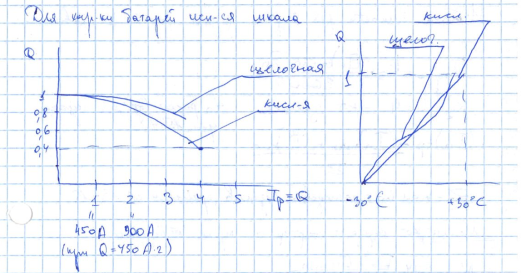 Для хар-ки батарей исп-ся шкала
Q
щелочная
кисл-я
1
0,8
0,6
0,4
1 2 3 4 5 Iр≡Q
450А 900А
(при Q=450 А·г)
Q
кисл.
щелоч.
1
-30°C
+30°C